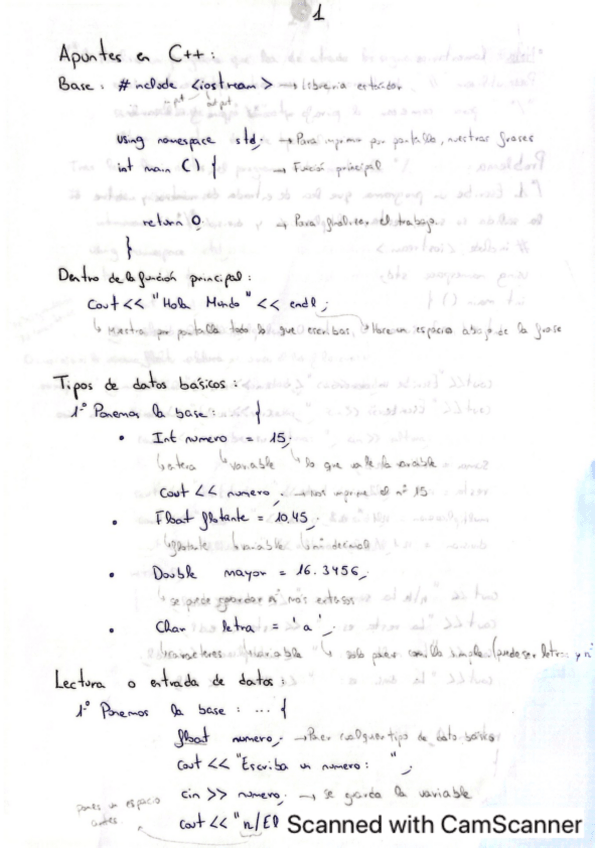 1
Apuntes en C++:
Base: #include <iostream> → Libreria estándar
input output
using namespace std; → Para imprimir por pantalla, nuestras frases
int main () { → Función principal
return 0; → Para finalizar el trabajo.
}
Dentro de la función principal:
Cout << "Hola Mundo" << endl;
↳ Muestra por pantalla todo lo que escribas. ↳ Hace un espacio abajo de la frase
Tipos de datos básicos:
1º Ponemos la base: {
• Int numero = 15;
↳ entera ↳ variable ↳ lo que vale la variable
Cout << numero; → nos imprime el nº 15
• Float flotante = 10,45;
↳ flotante ↳ variable ↳ nº decimal
• Double mayor = 16.3456;
↳ se puede guardar nº más extensos
• Char letra = 'a';
↳ caracteres ↳ variable ↳ solo poner comilla simple (puede ser letras y nº
Lectura o entrada de datos:
1º Ponemos la base: ... {
float numero; → Poner cualquier tipo de dato básico
Cout << "Escriba un numero: ";
cin >> numero; → se guarda la variable
pones un espacio
antes.
Cout << "n/El
Scanned with CamScanner